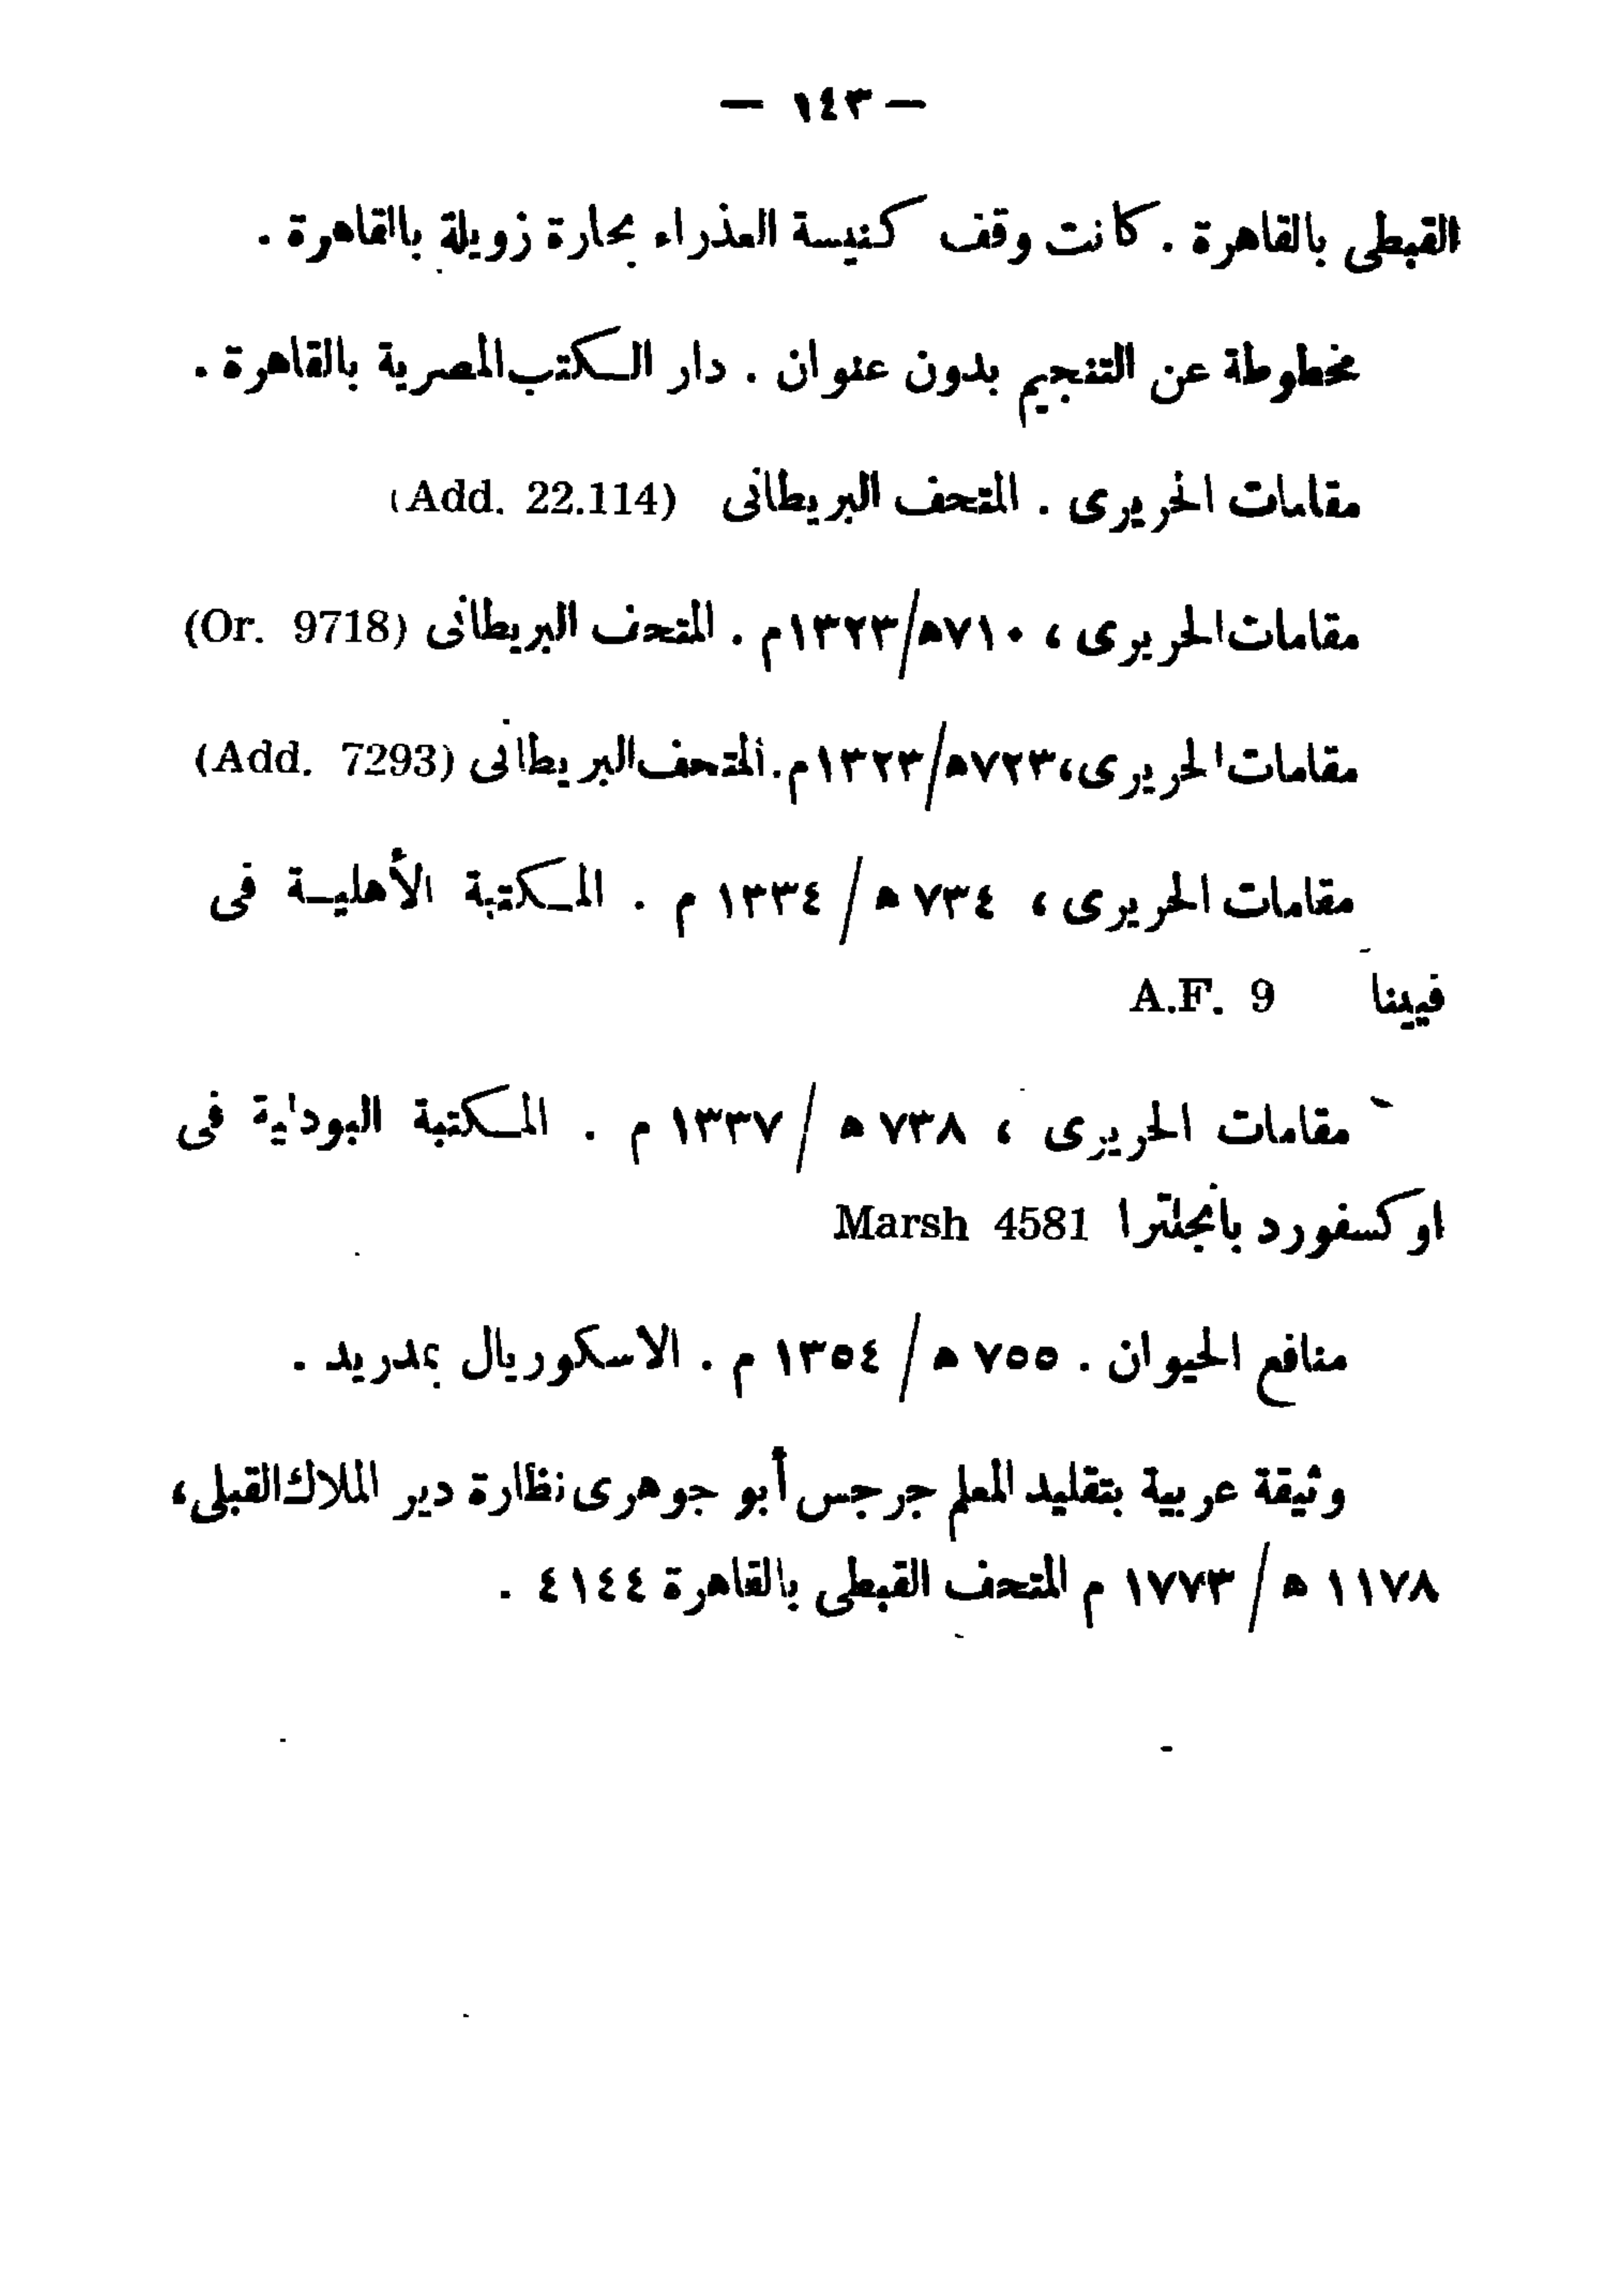 — ١٤٣ —
القبطى بالقاهرة . كانت وقف كنيسة العذراء بحارة زويلة بالقاهرة .
مخطوطة عن التنجيم بدون عنوان . دار الكتب المصرية بالقاهرة .
مقامات الحريرى . المتحف البريطانى (Add. 22.114)
مقامات الحريرى ، ٧١٠ه/١٣٢٣م . المتحف البريطانى (Or. 9718)
مقامات الحريرى، ٧٢٣ه/١٣٢٣م. المتحف البريطانى (Add. 7293)
مقامات الحريرى ، ٧٣٤ ه / ١٣٣٤ م . المكتبة الأهلية فى
فيينا A.F. 9
مقامات الحريرى ، ٧٣٨ ه / ١٣٣٧ م . المكتبة البودلية فى
اوكسفورد بانجلترا Marsh 4581
منافع الحيوان . ٧٥٥ ه / ١٣٥٤ م . الاسكوريال بمدريد .
وثيقة عربية بتقليد المعلم جرجس أبو جوهرى نظارة دير الملاك القبلى،
١١٧٨ ه / ١٧٧٣ م المتحف القبطى بالقاهرة ٤١٤٤ .